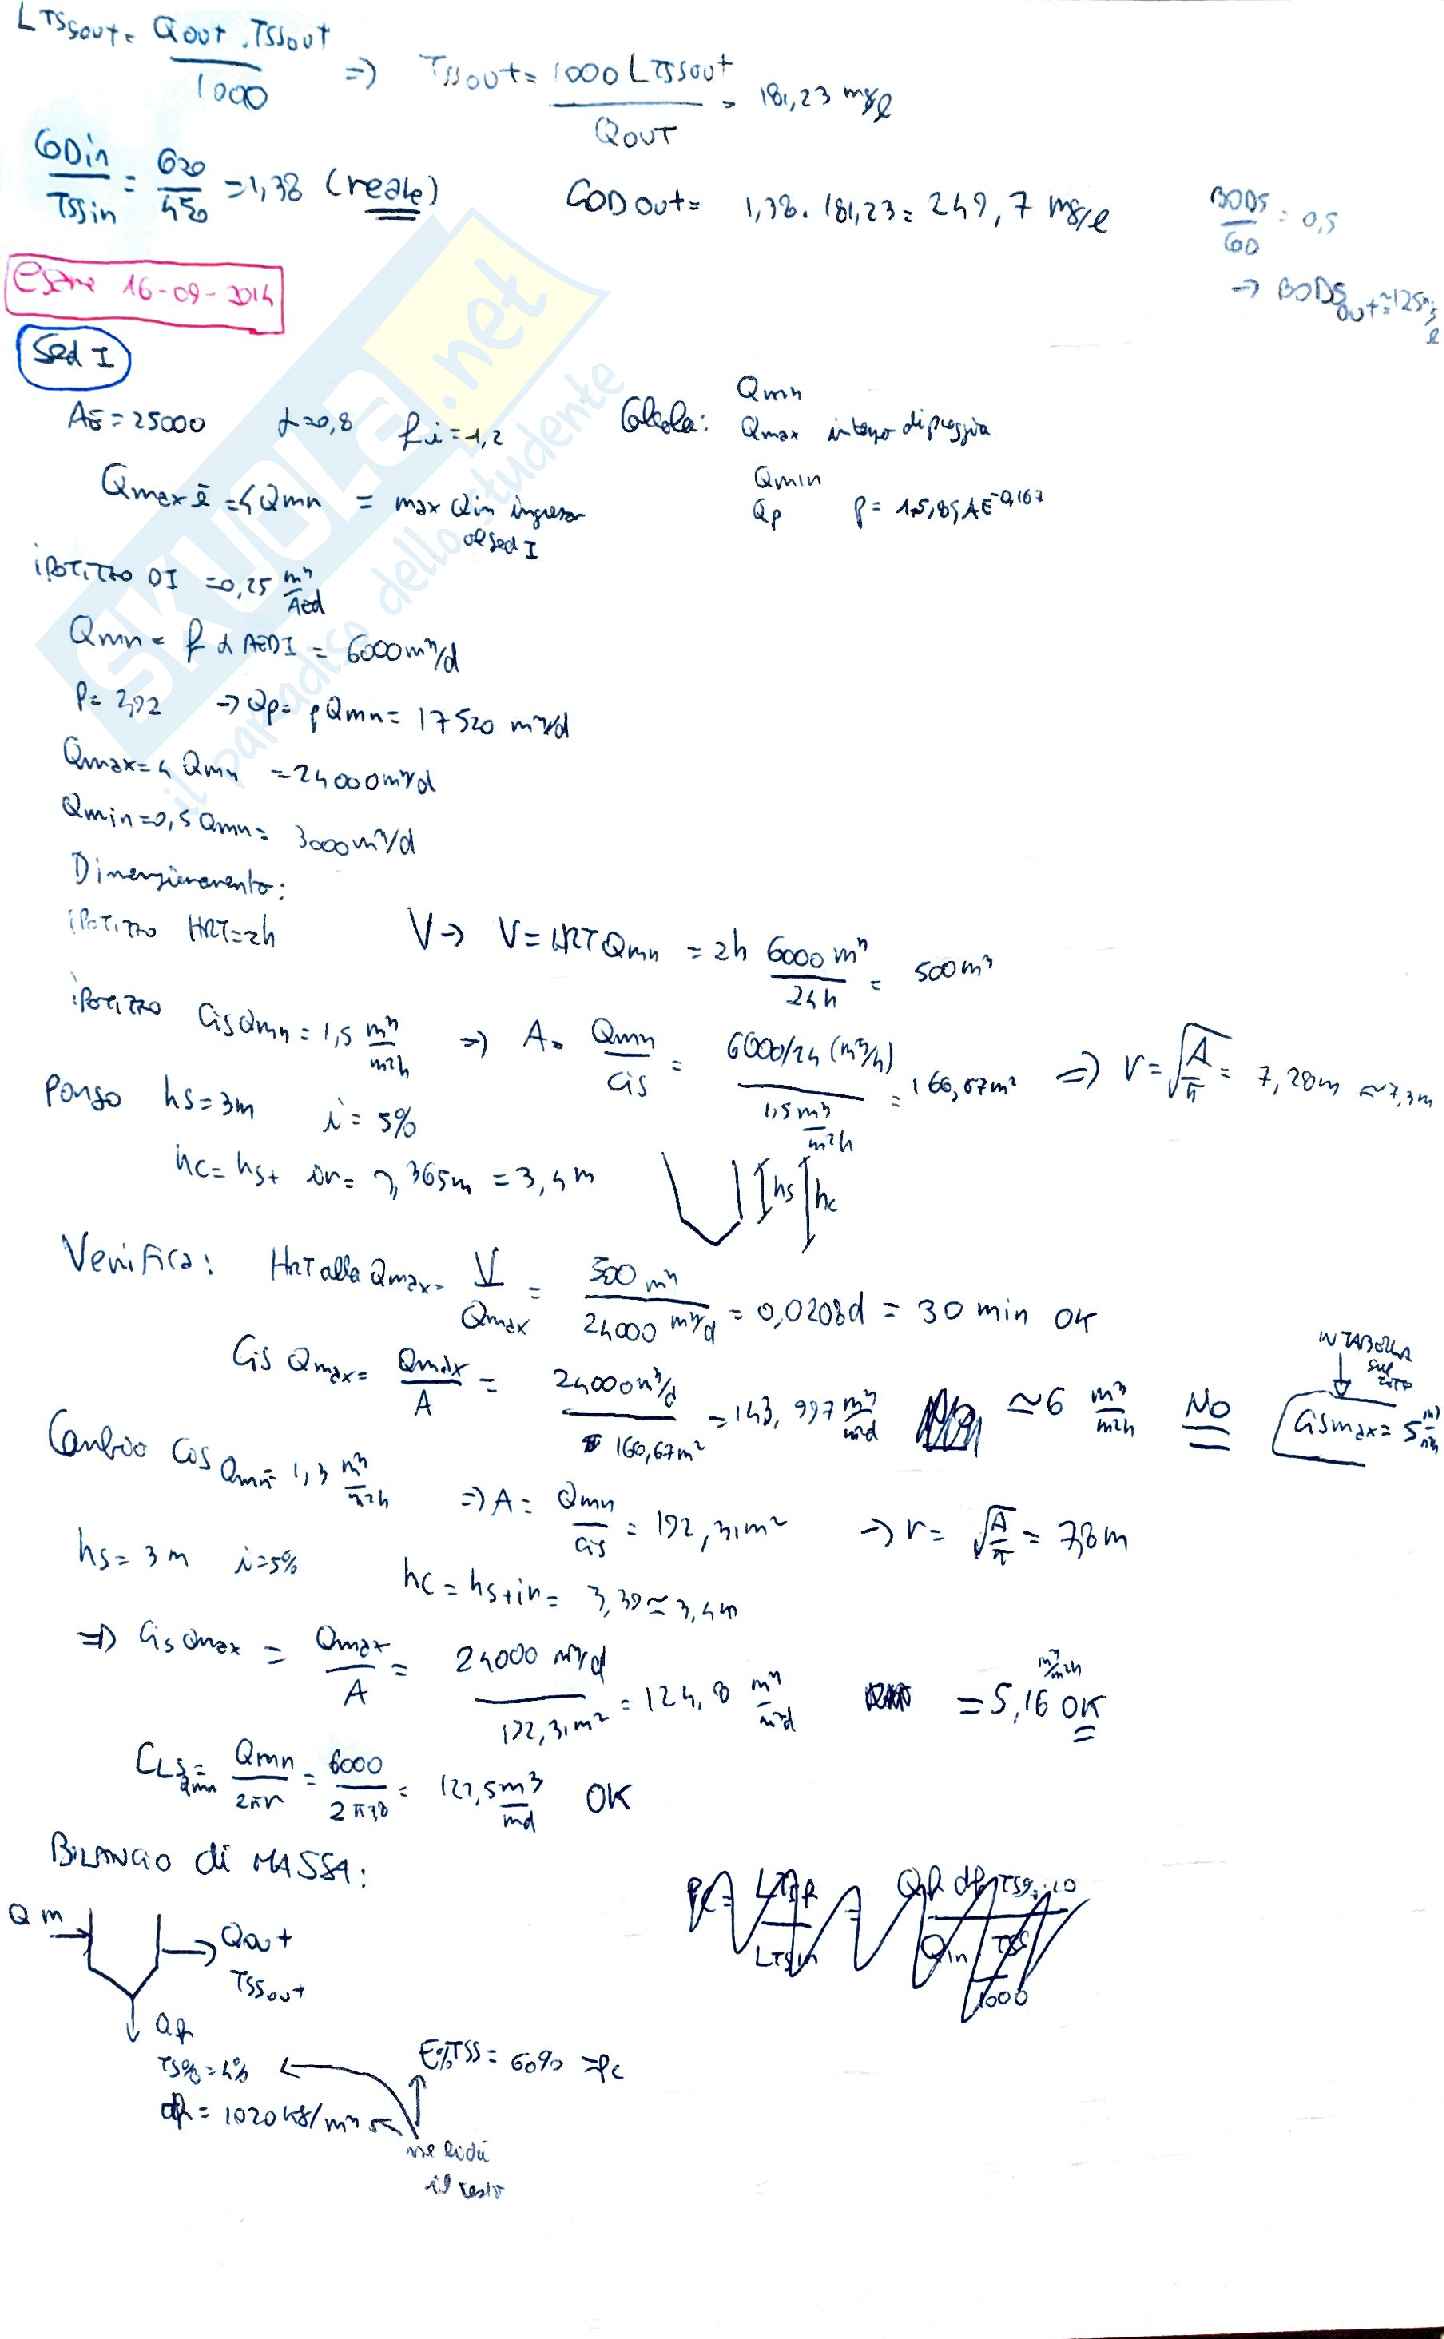 LTSSout = Qout . TSSout / 1000 => TSSout = 1000 LTSSout / QOUT = 181,23 mg/l
CODin / TSSin = 620 / 450 = 1,38 (reale) CODout = 1,38 . 181,23 = 249,7 mg/l BOD5 / COD = 0,5
=> BOD5out ≃ 125 mg/l
Esame 16-09-2014
Sed I
AE = 25000 α=0,8 fi = 1,2 Calcola: Qmn
Qmax in tempo di pioggia
Qmaxè = 4 Qmn = max Qin ingresso al sed I Qmin
Qp p = 15,85 AE^-0,167
iPOTIZZO DI = 0,25 m³/AEd
Qmn = f α AE DI = 6000 m³/d
P = 2,92 -> Qp = p Qmn = 17520 m³/d
Qmax = 4 Qmn = 24000 m³/d
Qmin = 0,5 Qmn = 3000 m³/d
Dimensionamento:
iPOTIZZO HRT=2h V -> V = HRT Qmn = 2h 6000 m³ / 24h = 500 m³
iPOTIZZO CisQmn = 1,5 m³/m²h => A = Qmn / Cis = 6000/24 (m³/h) / 1,5 m³/m²h = 166,67 m² => r = √A/π = 7,28m ≃ 7,3m
Pongo hs = 3m i = 5%
hc = hs + ir = 3,365m = 3,4 m hs hc
Verifica: HRT alla Qmax = V / Qmax = 500 m³ / 24000 m³/d = 0,0208d = 30 min OK
Cis Qmax = Qmax / A = 24000 m³/d / 166,67 m² = 143,997 m³/m²d ≃ 6 m³/m²h NO
IN TABELLA
Cismax = 5 m³/m²h
Cambio Cis Qmn = 1,3 m³/m²h => A = Qmn / Cis = 192,31 m² -> r = √A/π = 7,8m
hs = 3 m i = 5% hc = hs + ir = 3,39 ≃ 3,4m
=> Cis Qmax = Qmax / A = 24000 m³/d / 192,31 m² = 124,8 m³/m²d = 5,16 m³/m²h OK
CLs Qmn = Qmn / 2πr = 6000 / 2π7,8 = 122,5 m³/md OK
BILANCIO di MASSA:
Qin
Qout
TSSout
Qf
TS% = 4% E%TSS = 60% = Rc
df = 1020 kg/m³
me li dà
il testo
SKUOLA.net
il paradiso dello studente